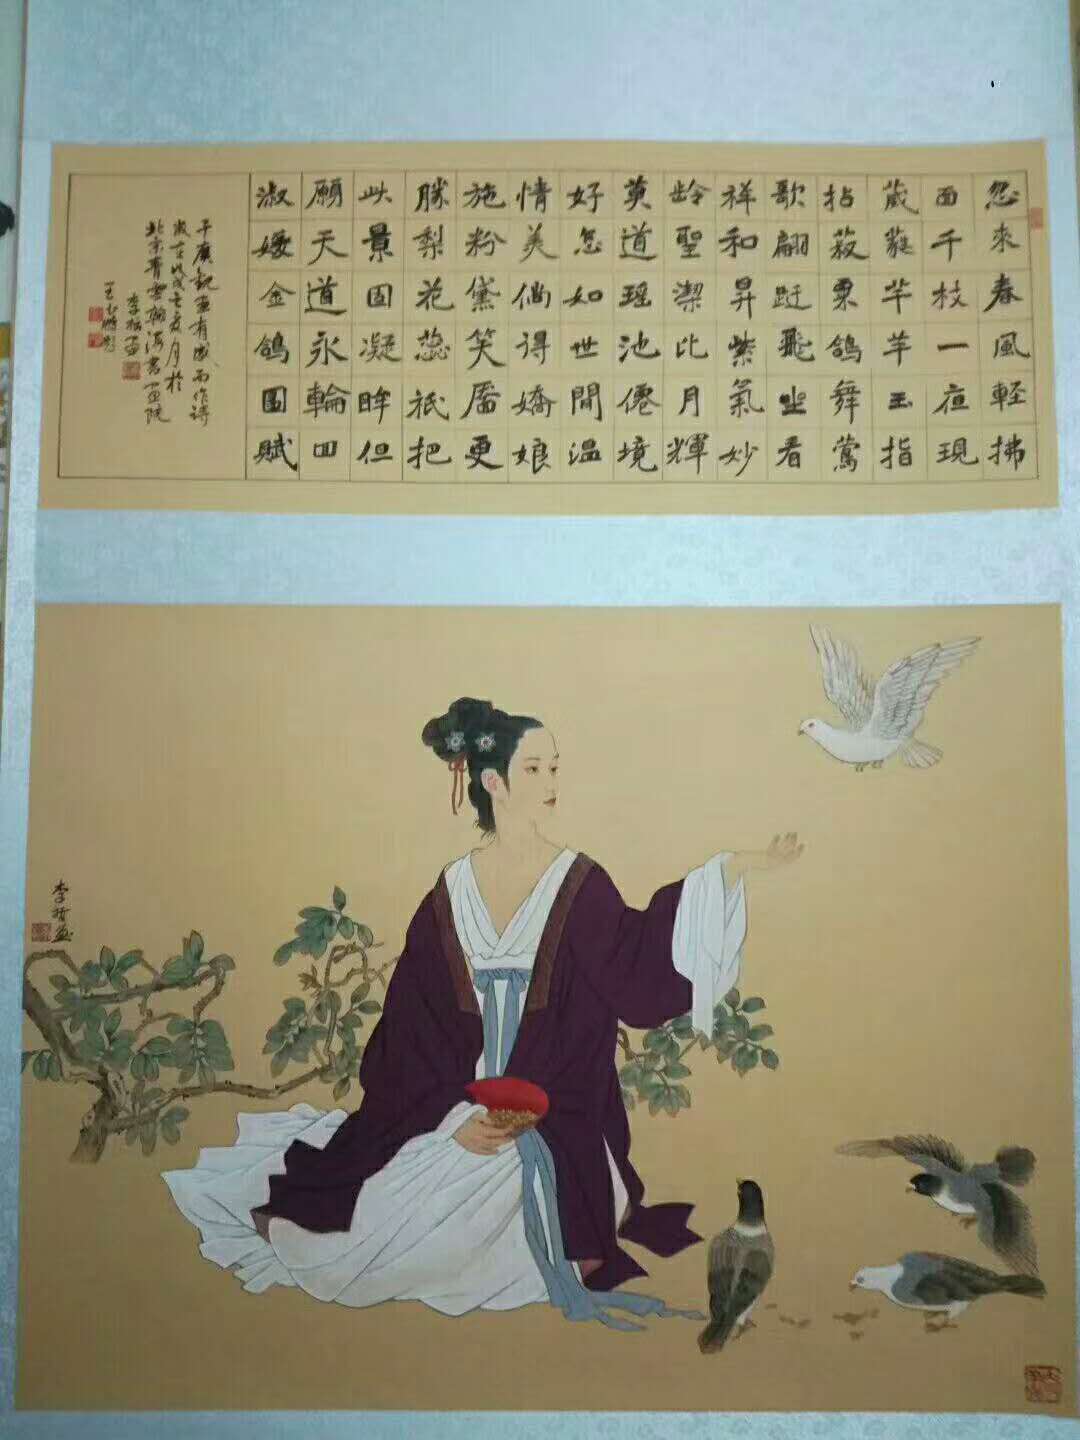 忽來春風輕拂
面千枝一夜現
葳蕤芊芊玉指
拈菽粟鴿舞鶯
歌翩跹飛坐看
祥和昇紫氣妙
龄聖潔比月輝
莫道瑶池僊境
好怎如世間温
情美倘得嬌娘
施粉黛笑靥更
勝梨花蕊祇把
此景固凝眸但
願天道永輪回
淑媛金鴿圖賦
于廣觀畫有感而作詩
歲在戊戌年月於
北京書畫院
李哲畫